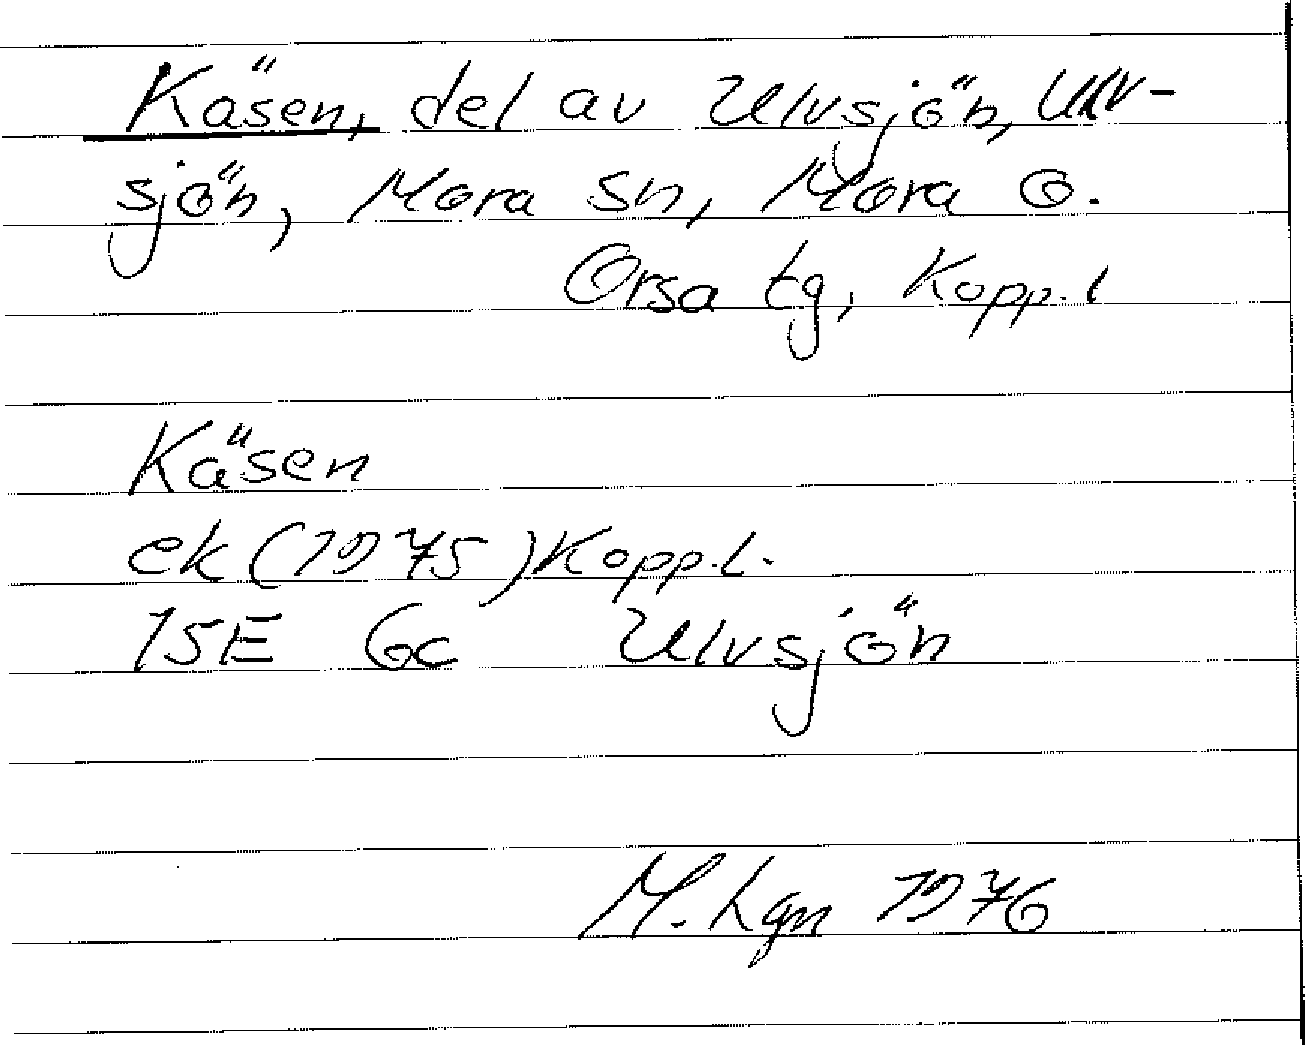 Käsen, del av Ulvsjön, Ulv-
sjön, Mora sn, Mora o.
Orsa tg, Kopp. l
Käsen
ek (1975) Kopp. l.
15E 6c Ulvsjön
M. Lgn 1976